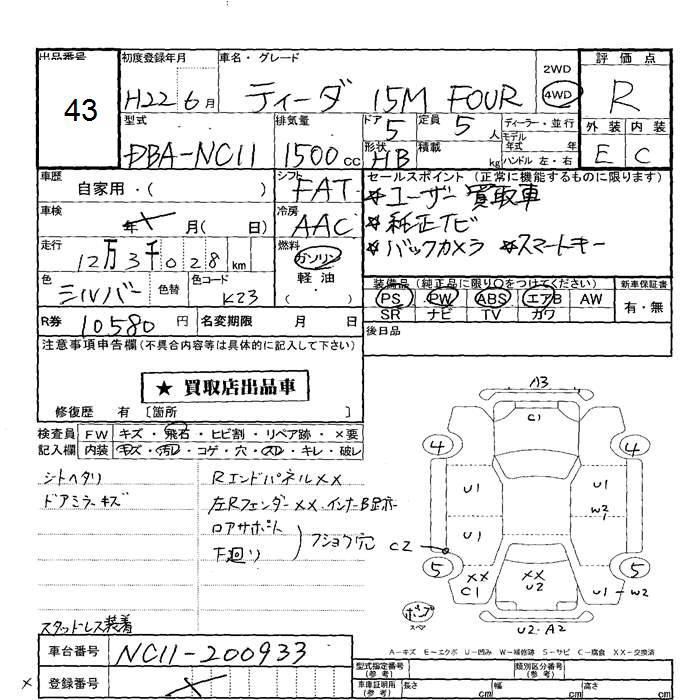 出品番号
43
初度登録年月
H22 6月
車名・グレード
ティーダ 15M FOUR
2WD
4WD
評価点
R
型式
DBA-NC11
排気量
1500cc
ドア
5
定員
5人
ディーラー・並行
モデル
年式 年
ハンドル 左・右
形状
HB
積載
kg
外装
内装
E
C
車歴
自家用・( )
シフト
FAT
セールスポイント (正常に機能するものに限ります)
★ユーザー買取車
★純正ナビ
★バックカメラ ★スマートキー
車検
年 月( 日)
冷房
AAC
走行
12万3千028km
燃料
ガソリン
軽油
( )
色
シルバー
色替
色コード
K23
装備品 (純正品に限り○をつけてください)
PS PW ABS エアB AW
SR ナビ TV カワ
新車保証書
有・無
R券
10580円
名変期限 月 日
後日品
注意事項申告欄(不具合内容等は具体的に記入して下さい)
★ 買取店出品車
修復歴 有 〔箇所 〕
検査員
記入欄
FW キズ・飛石・ヒビ割・リペア跡・×要
内装 キズ・汚レ・コゲ・穴・スレ・キレ・破レ
シートヘタリ
ドアミラーキズ
RエンドパネルXX
左RフェンダーXX・インナーB
ロアサポート
下廻り
フショク穴
スタッドレス装着
A3
C1
4
4
U1
U1
W2
U1
C2
5
5
XX
C1
XX
U2
U1-W2
U2・A2
スペア
A-キズ E-エクボ U-凹み W-補修跡 S-サビ C-腐食 XX-交換済
車台番号
NC11-200933
登録番号
型式指定番号
(参考)
類別区分番号
(参考)
車庫証明用
(参考)
長さ cm
幅 cm
高さ cm